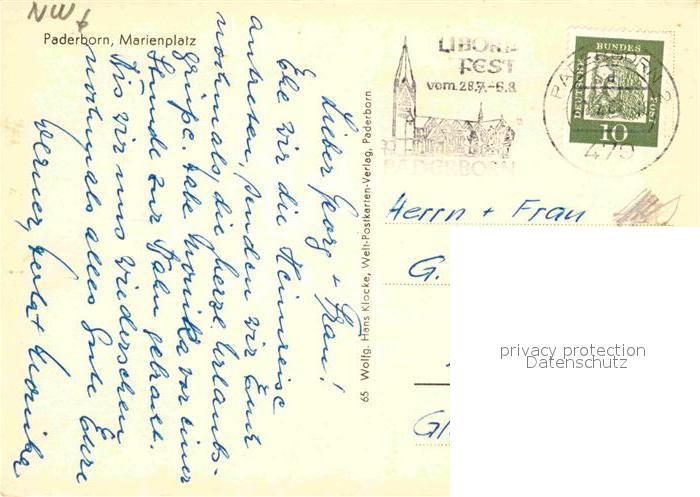 NW
Paderborn, Marienplatz
Lieber Georg + Frau!
Ehe wir die Heimreise
antreten, senden wir Eure
nochmals die herzl. Urlaubs-
grüße. Habe Monika vor einer
Stunde zur Bahn gebracht.
Bis wir uns wiedersehen
nochmals alles Gute Eure
Werner, Herta + Monika
65 Wolfg. Hans Klocke, Welt-Postkarten-Verlag, Paderborn
LIBORI-
FEST
vom 28.7.-6.8.
PADERBORN
PADERBORN 2
475
DEUTSCHE
BUNDES
POST
10
Herrn + Frau
G.
Gl
privacy protection
Datenschutz